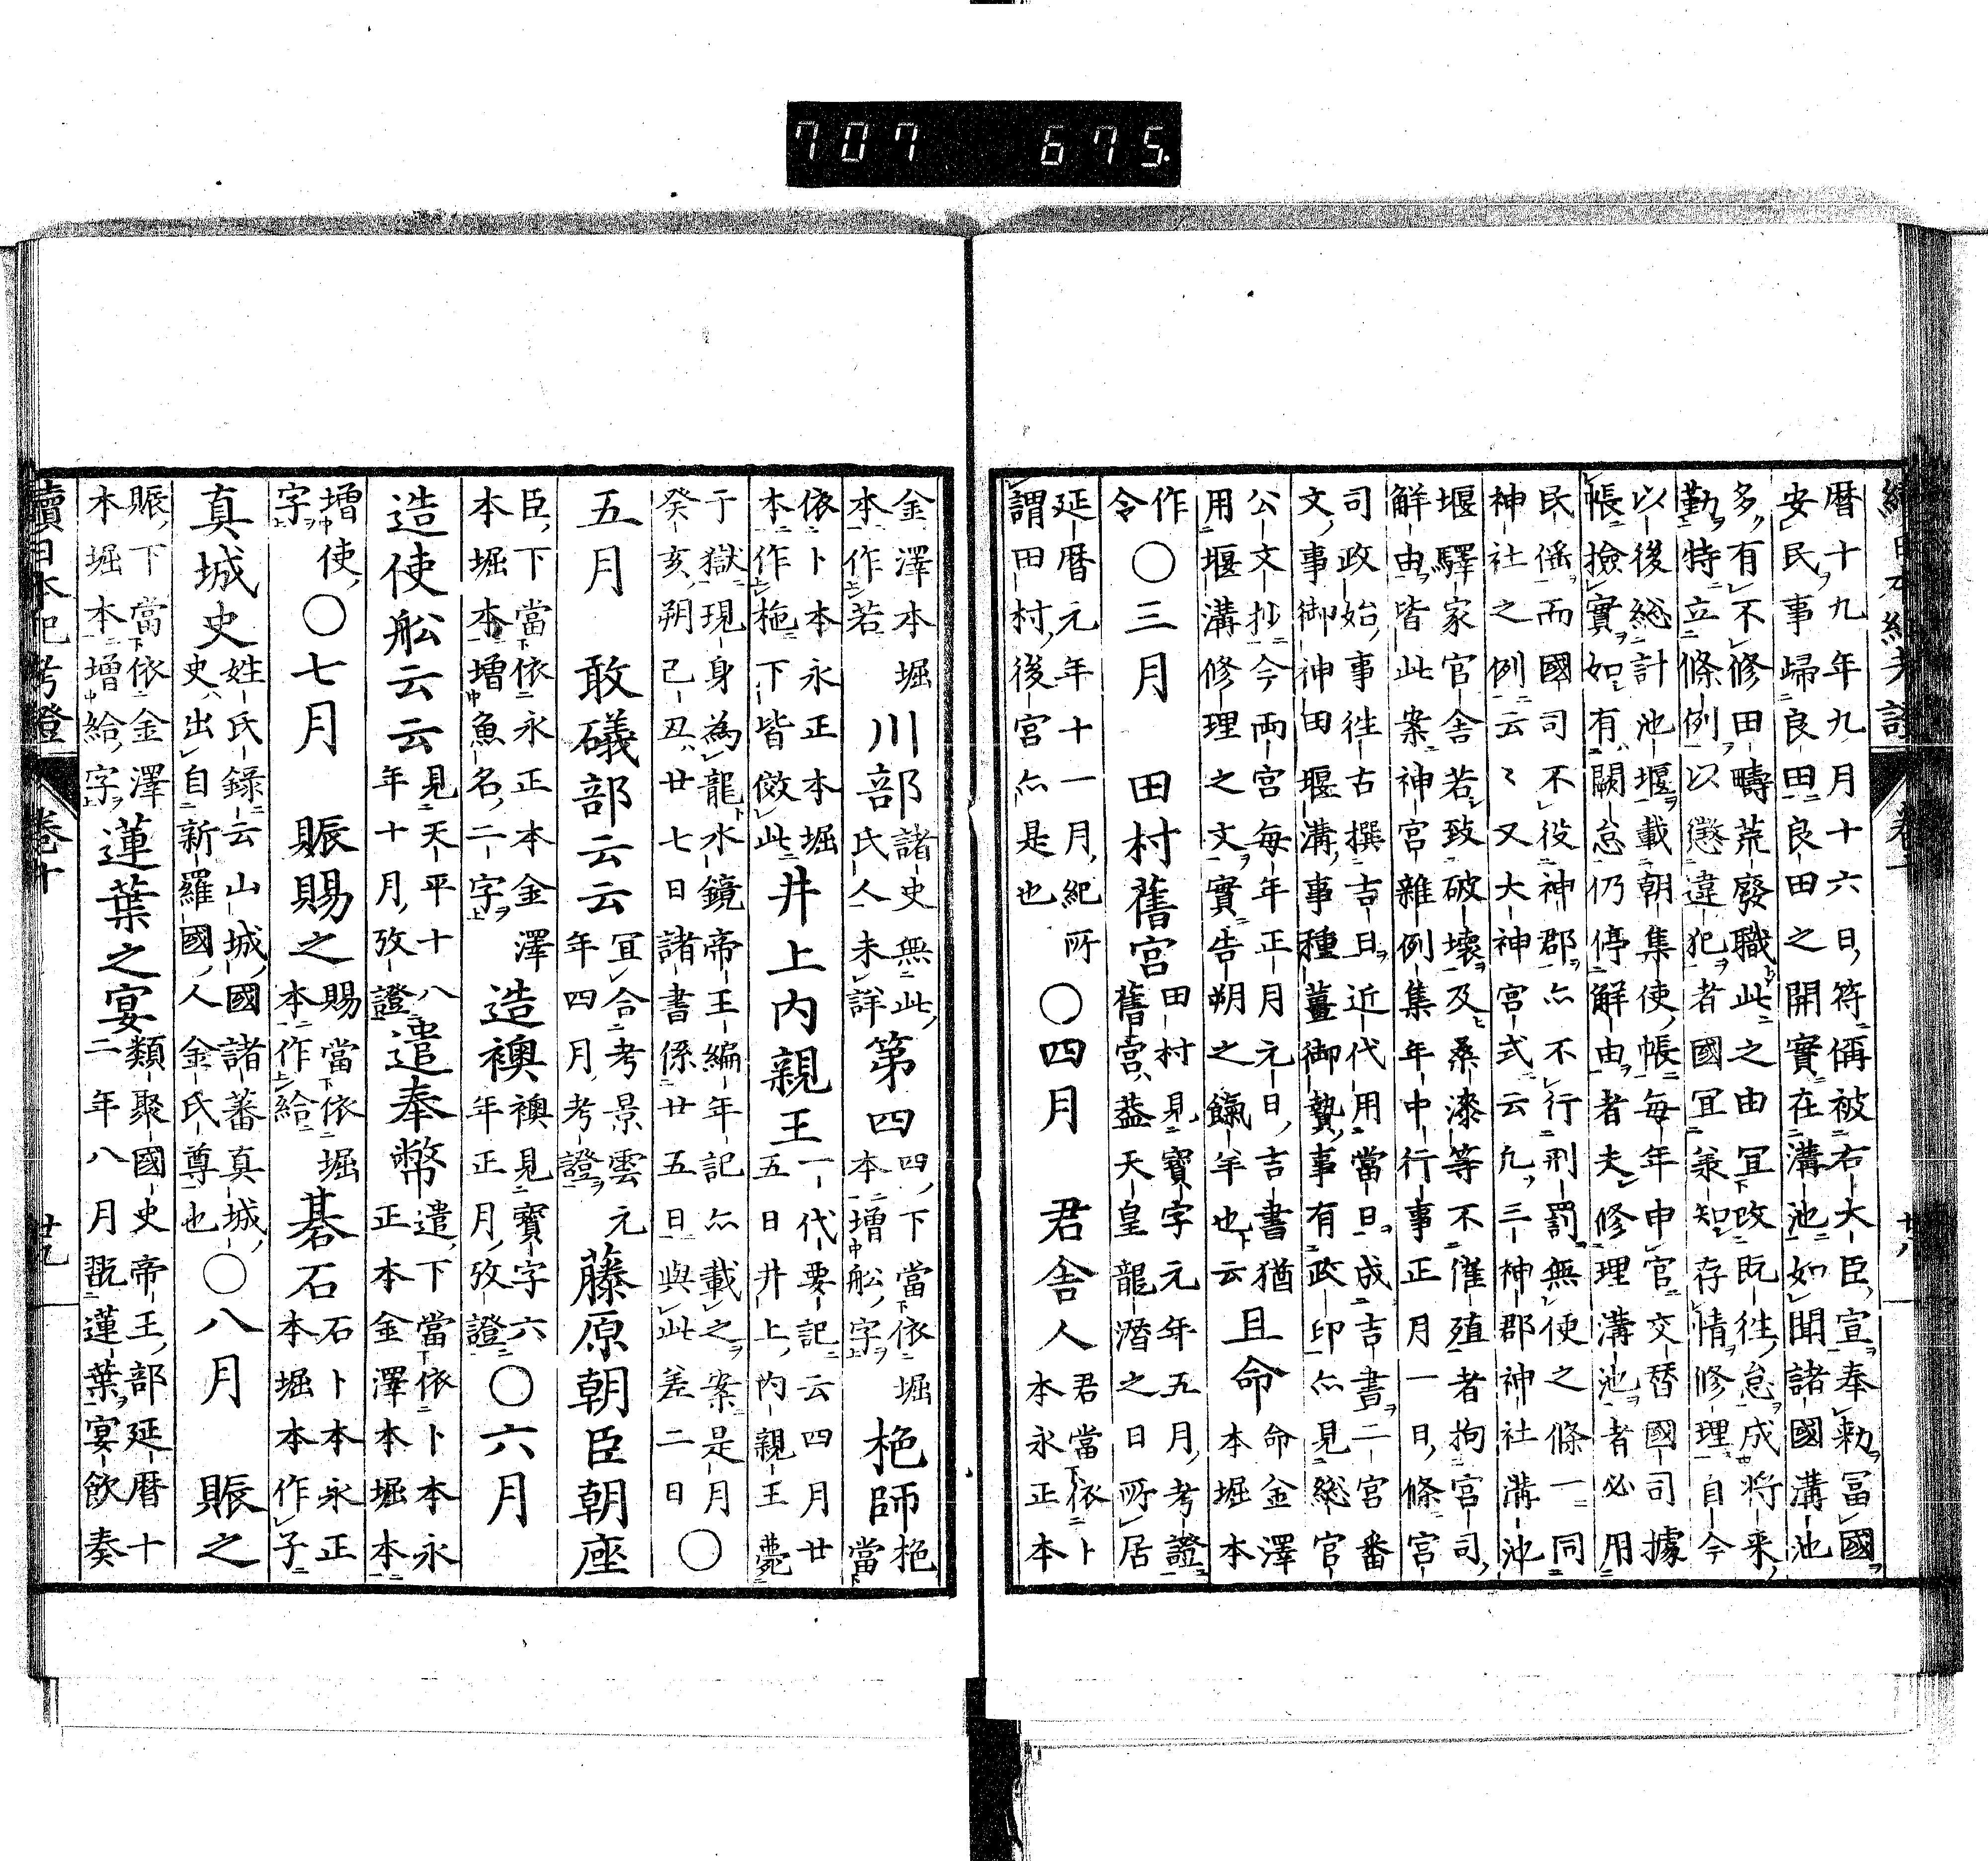 707 675.
續日本紀考證 卷十 廿八
暦十九年九月十六日,符偁被右大臣,宣奉勅冨國
安民,事歸良田良田之開實在溝池如聞諸國溝池
多,有不修田疇荒廢職此之由冝改既往,怠成將来,
勤特立條例以懲違犯者國冝兼知存情修理自今
以後総計池堰載朝集使,帳每年申官交替國司據
帳撿實如有闕怠仍停解由者夫修理溝池者必用
民徭而國司不役神郡亦不行刑罰無使之條一同
神社之例云〻又大神宮式云凢,三神郡神社溝池
堰驛家官舎若致破壊及桑漆等不催殖者拘宮司,
解由皆此案神宮雜例集年中行事正月一日,條宮
司政始,事徃古撰吉日近代用當日成吉書二宮番
文,事御神田堰溝,事種薑御贄,事有政印亦見総官
公文抄今兩宮每年正月元日,吉書猶
用堰溝修理之文實告朔之餼羊也云
且命
命金澤
本堀本
作
令
○三月 田村舊宮
田村見寶字元年五月,考證
舊宮,葢天皇龍潛之日所居
延暦元年十一月,紀所
謂田村,後宮亦是也
○四月 君舎人
君當依卜
本永正本
金澤本堀
本作若
川部
諸史無此,
氏人未詳
第四
四,下當依堀
本增舩,字
栬師
栬當
依卜本永正本堀
本作拖下皆倣此
井上内親王
一代要記云四月廿
五日井上,内親王薨
于獄現身為龍水鏡帝王編年記亦載之案是月
癸亥,朔己丑,廿七日諸書係廿五日與此差二日
○
五月 敢礒部云云
冝合考景雲元
年四月,考證
藤原朝臣朝座
臣,下當依永正本金澤
本堀本增魚名,二字
造襖
襖見寶字六
年正月,攷證
○六月
造使舩云云
見天平十八
年十月,攷證
遣奉幣
遣,下當依卜本永
正本金澤本堀本
增使,
字
○七月 賑賜之
賜當依堀
本作給
碁石
石卜本永正
本堀本作子
真城史
姓氏録云山城,國諸蕃真城,
史,出自新羅國,人金氏尊也
○八月 賑之
賑,下當依金澤
本堀本增給,字
蓮葉之宴
類聚國史帝王,部延暦十
二年八月翫蓮葉宴飲奏
續日本紀考證 卷十 廿九